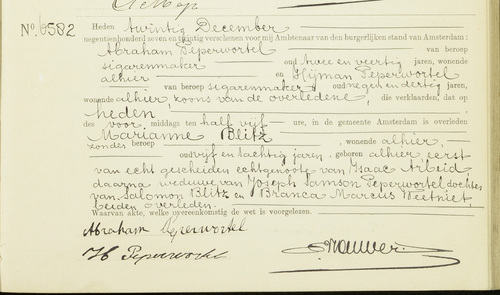 No. 6582
Heden twintig December
negentienhonderd zeven en twintig verschenen voor mij Ambtenaar van den burgerlijken stand van Amsterdam:
Abraham Peperwortel
van beroep
sigarenmaker oud twee en veertig jaren, wonende
alhier en Hijman Peperwortel
van beroep sigarenmaker oud negen en dertig jaren,
wonende alhier, zoons van de overledene, die verklaarden, dat op
heden
des voor middags ten half vijf ure, in de gemeente Amsterdam is overleden
Marianne Blitz
zonder beroep, wonende alhier,
oud vijf en tachtig jaren, geboren alhier, eerst
van echt gescheiden echtgenoote van Isaac Arbeid
daarna weduwe van Joseph Samson Peperwortel dochter
van Salomon Blitz en Branca Marcus Weetniet
beiden overleden.
Waarvan akte, welke overeenkomstig de wet is voorgelezen.
Abraham Peperwortel
H Peperwortel